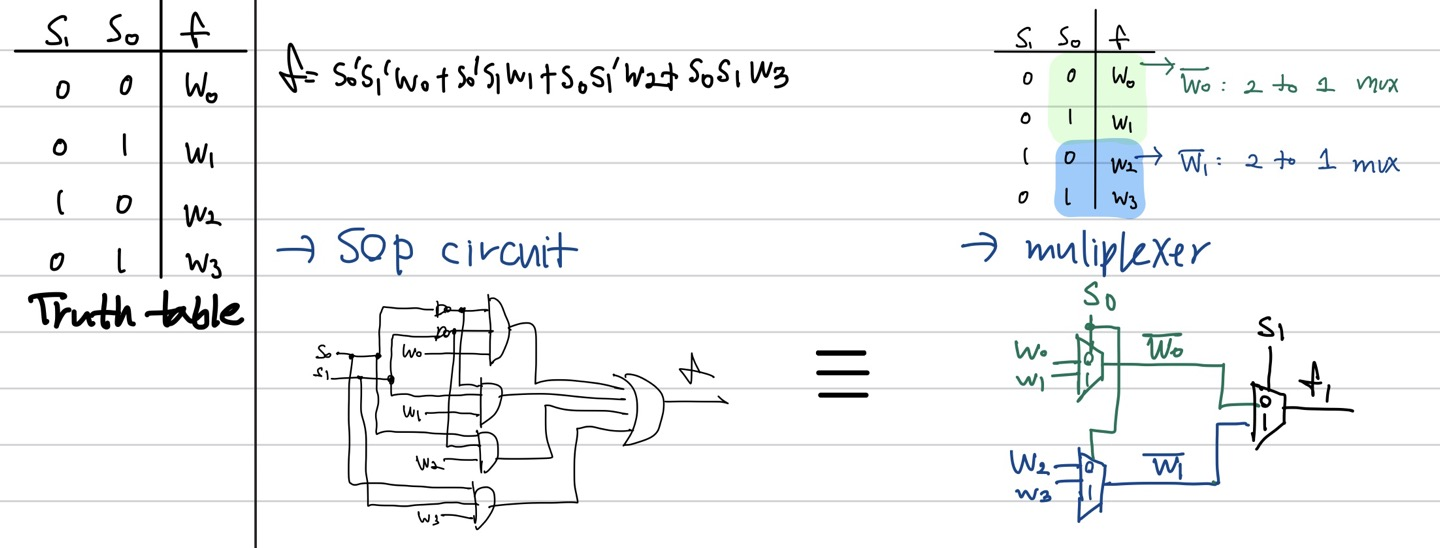 S₁ S₀ f
0 0 W₀
0 1 W₁
1 0 W₂
0 1 W₃
Truth table
f= S₀'S₁'W₀ + S₀'S₁W₁ + S₀S₁'W₂ + S₀S₁W₃
→ SOP circuit
S₀
S₁
W₀
W₁
W₂
W₃
f
≡
S₁ S₀ f
0 0 W₀ → W̅₀: 2 to 1 mux
0 1 W₁
1 0 W₂ → W̅₁: 2 to 1 mux
0 1 W₃
→ muliplexer
S₀
W₀ 0 W̅₀
W₁ 1
S₁
0 f₁
1
W₂ 0 W̅₁
W₃ 1